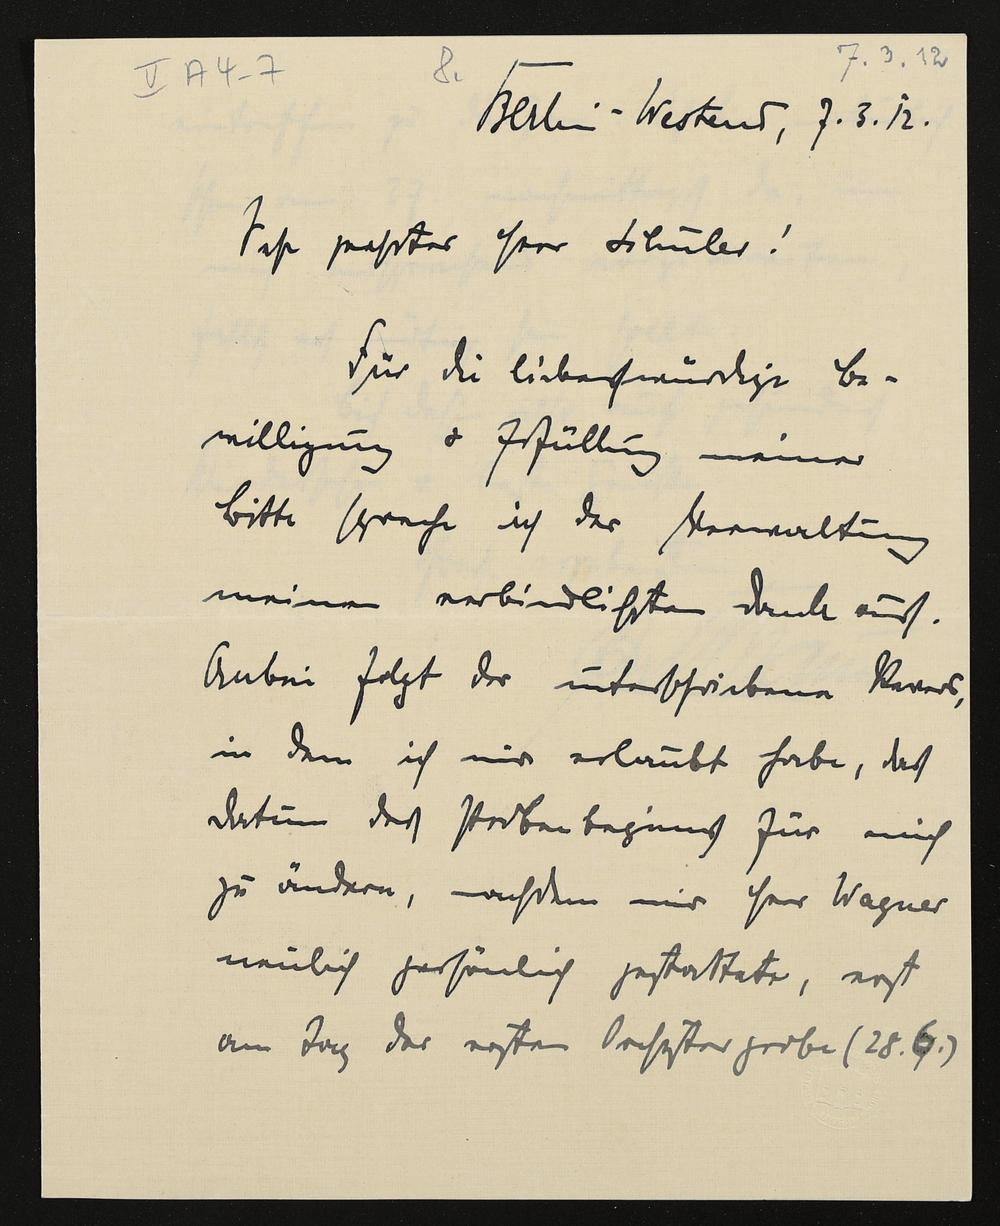 V A4-7 8. 7.3.12
Berlin-Westend, 7.3.12.
Sehr geehrter Herr Schuler!
Für die liebenswürdige Be-
willigung & Erfüllung meiner
Bitte spreche ich der Verwaltung
meinen verbindlichsten Dank aus.
Anbei folgt der unterschriebene Revers,
in dem ich mir erlaubt habe, das
Datum des Probenbeginns für mich
zu ändern, nachdem mir Herr Wagner
neulich persönlich gestattete, erst
am Tag der ersten Orchesterprobe (28.6.)